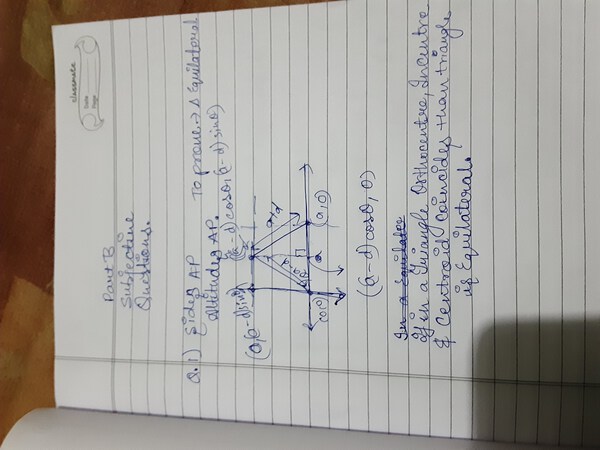 classmate
Date
Page
Part B
Subjective
Questions.
Q.1) Sides AP To prove → Δ Equilateral
Altitudes AP.
((a-d)cosθ, (a-d)sinθ)
(0, (a-d)sinθ)
a-d
a+d
θ
(0,0) a (a,0)
((a-d)cosθ, 0)
In a Equilate
If in a Triangle Orthocentre, Incentre
& Centroid coincides than triangle
is Equilateral.